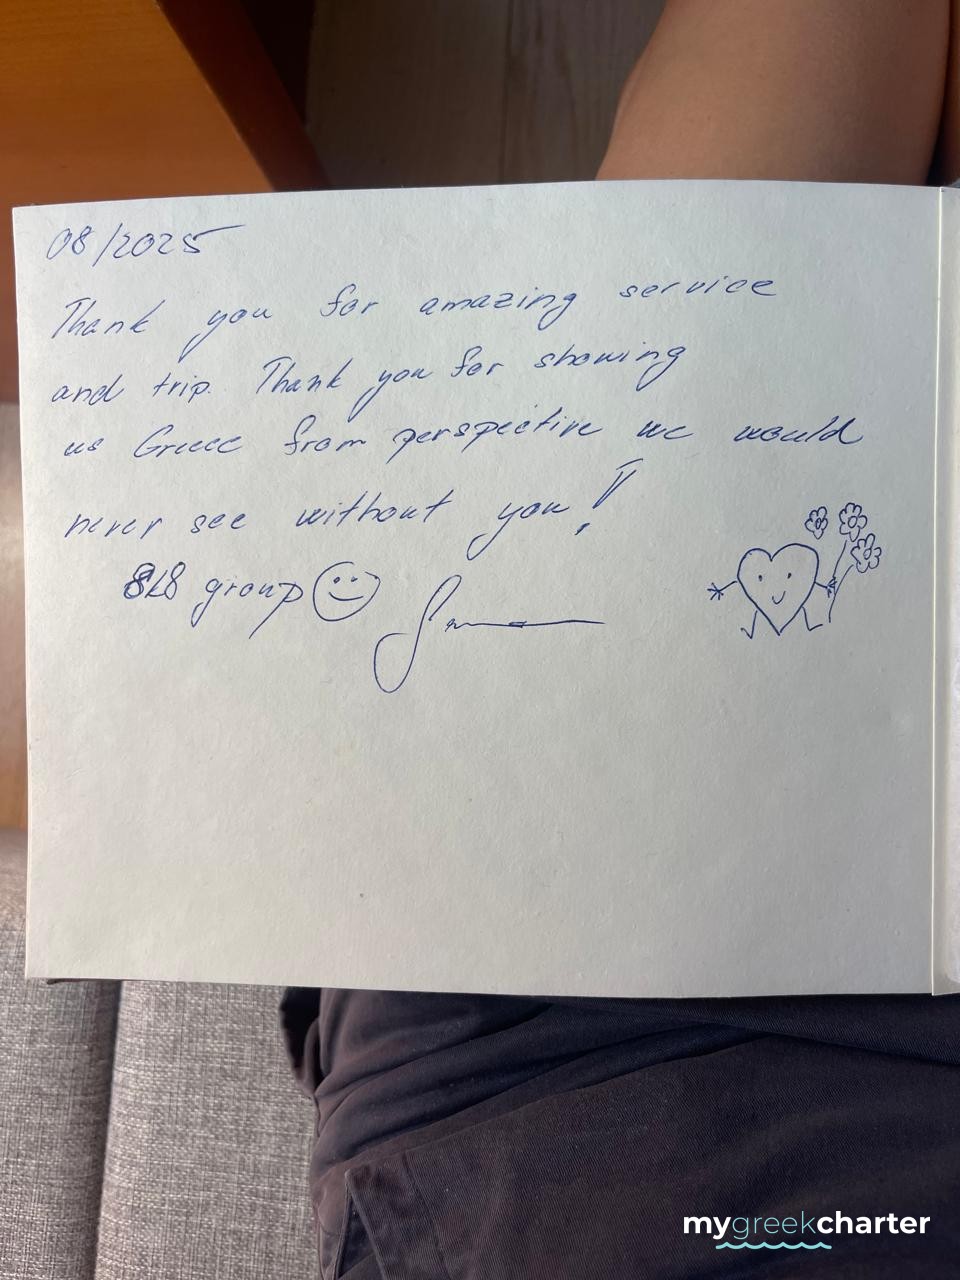 08/2025
Thank you for amazing service
and trip. Thank you for showing
us Greece from perspective we would
never see without you!
group
mygreekcharter